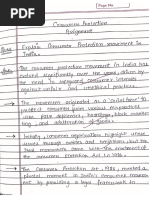 Page No.
Consumer Protection
Assignment
Explain Consumer Protection movement in
India.
The consumer protection movement in India has
evolved significantly over the years, driven by
the need to safeguard consumer interests
against unfair and unethical practices.
→ The movement originated as a "social force" to
protect consumers from various malpractices
like food shortages, hoarding, black market
ing, and adulteration of goods.
→ Initially, consumer organisations highlight these
issues through articles and exhibitions, but the
real momentum came with the enactment of
the consumer Protection Act in 1986.
→ The Consumer Protection Act 1986, marked a
pivotal moment in India's consumer movem
ent by providing a legal framework to